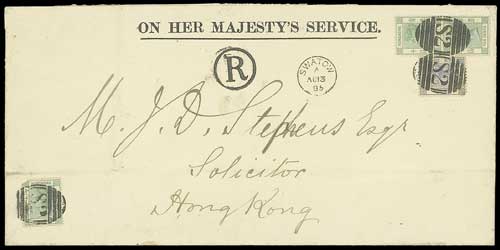 ON HER MAJESTY'S SERVICE.
R
SWATOW
A
AU 13
85
S2
S2
M. J. D. Stephens Esqr
Solicitor
Hong Kong
S2